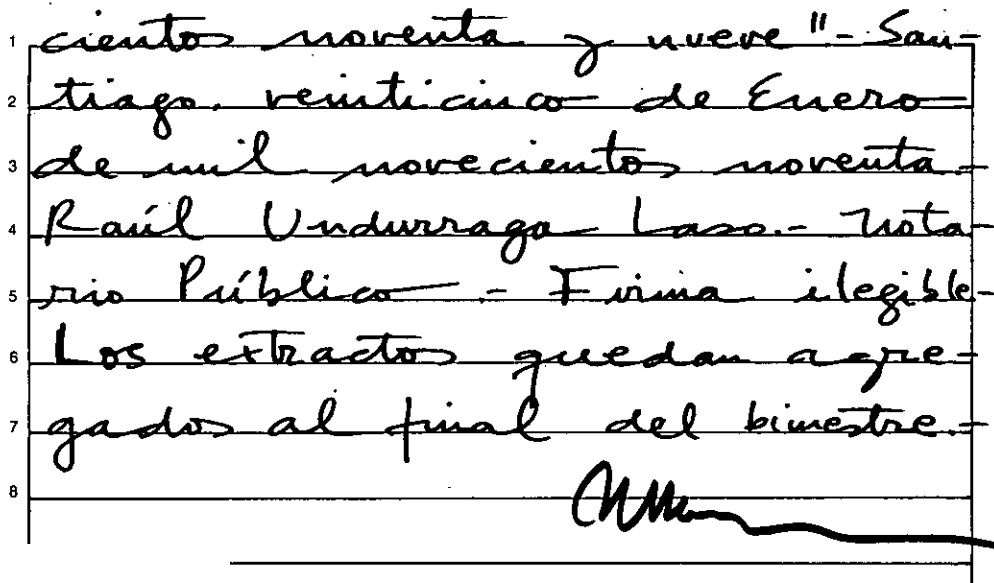 1 cientos noventa y nueve".- San-
2 tiago, veinticinco de Enero
3 de mil novecientos noventa.-
4 Raúl Undurraga Laso.- Nota-
5 rio Público.- Firma ilegible-
6 Los extractos quedan agre-
7 gados al final del bimestre.-
8